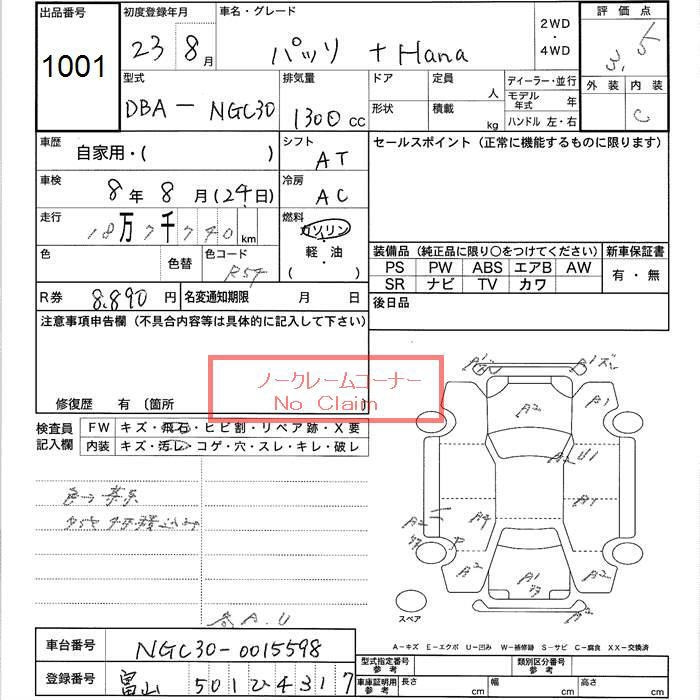 出品番号 初度登録年月 車名・グレード 2WD ・ 4WD 評価点
1001 23 8月 パッソ +Hana 3.5
型式 排気量 ドア 定員 人 ディーラー・並行 外装 内装
DBA－NGC30 1300cc 形状 積載 kg モデル年式 年 C
ハンドル 左・右
車歴 自家用・( ) シフト AT セールスポイント（正常に機能するものに限ります）
車検 8年 8月(24日) 冷房 AC
走行 18万7千740km 燃料 ガソリン
軽・油
( )
色 色替 色コード R54 装備品（純正品に限り○をつけてください） 新車保証書
PS PW ABS エアB AW 有・無
SR ナビ TV カワ
R券 8,890円 名変通知期限 月 日 後日品
注意事項申告欄（不具合内容等は具体的に記入して下さい）
ノークレームコーナー
No Claim
修復歴 有 〔箇所 〕
検査員記入欄 FW キズ・飛石・ヒビ割・リペア跡・X要
内装 キズ・汚レ・コゲ・穴・スレ・キレ・破レ
A1 ズレ
A1
A2
A2 U1
A1
A2
A2
A2
A1
A2
A2
スペア
A－キズ E－エクボ U－凹み W－補修跡 S－サビ C－腐食 XX－交換済
車台番号 NGC30-0015598
登録番号 富山 501 ひ 4317
型式指定番号 参考 類別区分番号 参考
車庫証明用 参考 長さ cm 幅 cm 高さ cm